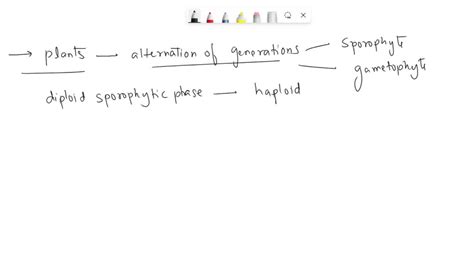 → plants — alternation of generations — sporophyte
— gametophyte
diploid sporophytic phase — haploid